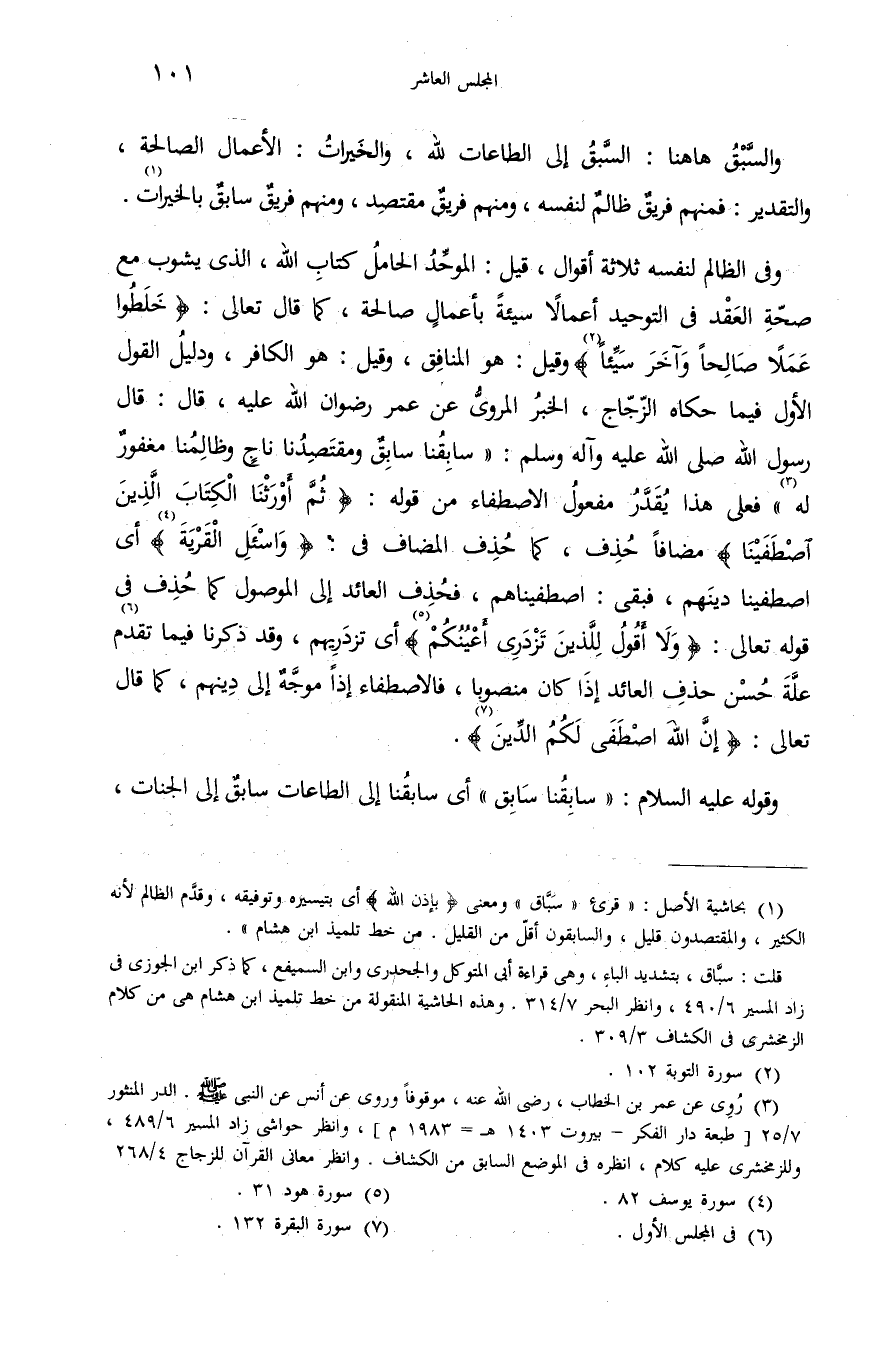 المجلس العاشر ١٠١
والسَّبْقُ هاهنا : السَّبقُ إلى الطاعات لله ، والخَيراتُ : الأعمال الصالحة ،
والتقدير : فمنهم فريقٌ ظالمٌ لنفسه ، ومنهم فريقٌ مقتصِد ، ومنهم فريقٌ سابقٌ بالخيرات(١) .
وفى الظالم لنفسه ثلاثة أقوال ، قيل : الموحِّدُ الحاملُ كتابِ الله ، الذى يشوب مع
صحّةِ العَقْد فى التوحيد أعمالًا سيئةً بأعمالٍ صالحة ، كما قال تعالى : ﴿ خَلَطُوا
عَمَلًا صَالِحاً وَآخَرَ سَيِّئاً ﴾(٢) وقيل : هو المنافِق ، وقيل : هو الكافر ، ودليلُ القول
الأول فيما حكاه الزّجّاج ، الخبرُ المروىُّ عن عمر رضوان الله عليه ، قال : قال
رسول الله صلى الله عليه وآله وسلم : « سابِقُنا سابِقٌ ومقتَصِدُنا ناجٍ وظالِمُنا مغفورٌ
له »(٣) فعلى هذا يُقَدَّرُ مفعولُ الاصطفاء من قوله : ﴿ ثُمَّ أَوْرَثْنَا الْكِتَابَ الَّذِينَ
آصْطَفَيْنَا ﴾ مضافاً حُذِف ، كما حُذِف المضاف فى : ﴿ وَاسْئَلِ الْقَرْيَةَ ﴾(٤) أى
اصطفينا دينَهم ، فبقى : اصطفيناهم ، فحُذِف العائد إلى الموصول كما حُذِف فى
قوله تعالى : ﴿ وَلَا أَقُولُ لِلَّذينَ تَزْدَرِى أَعْيُنُكُمْ ﴾(٥) أى تزدَرِيهم ، وقد ذكرنا فيما تقدم(٦)
علَّةَ حُسْن حذفِ العائد إذَا كان منصوبا ، فالاصطفاء إذاً موجَّهٌ إلى دِينهم ، كما قال
تعالى : ﴿ إنَّ اللهَ اصْطَفَى لَكُمُ الدِّينَ ﴾(٧) .
وقوله عليه السلام : « سابِقُنا سَابِق » أى سابقُنا إلى الطاعات سابقٌ إلى الجنات ،
(١) بحاشية الأصل : « قرئ « سَبَّاق » ومعنى ﴿ بإذن الله ﴾ أى بتيسيره وتوفيقه ، وقدَّم الظالم لأنه
الكثير ، والمقتصدون قليل ، والسابقون أقلّ من القليل . من خط تلميذ ابن هشام » .
قلت : سبَّاق ، بتشديد الباء ، وهى قراءة أبى المتوكل والجحدرى وابن السميفع ، كما ذكر ابن الجوزى فى
زاد المسير ٤٩٠/٦ ، وانظر البحر ٣١٤/٧ . وهذه الحاشية المنقولة من خط تلميذ ابن هشام هى من كلام
الزمخشرى فى الكشاف ٣٠٩/٣ .
(٢) سورة التوبة ١٠٢ .
(٣) رُوِى عن عمر بن الخطاب ، رضى الله عنه ، موقوفاً وروى عن أنس عن النبى ﷺ . الدر المنثور
٢٥/٧ [ طبعة دار الفكر – بيروت ١٤٠٣ هـ = ١٩٨٣ م ] ، وانظر حواشى زاد المسير ٤٨٩/٦ ،
وللزمخشرى عليه كلام ، انظره فى الموضع السابق من الكشاف . وانظر معانى القرآن للزجاج ٢٦٨/٤
(٤) سورة يوسف ٨٢ . (٥) سورة هود ٣١ .
(٦) فى المجلس الأول . (٧) سورة البقرة ١٣٢ .